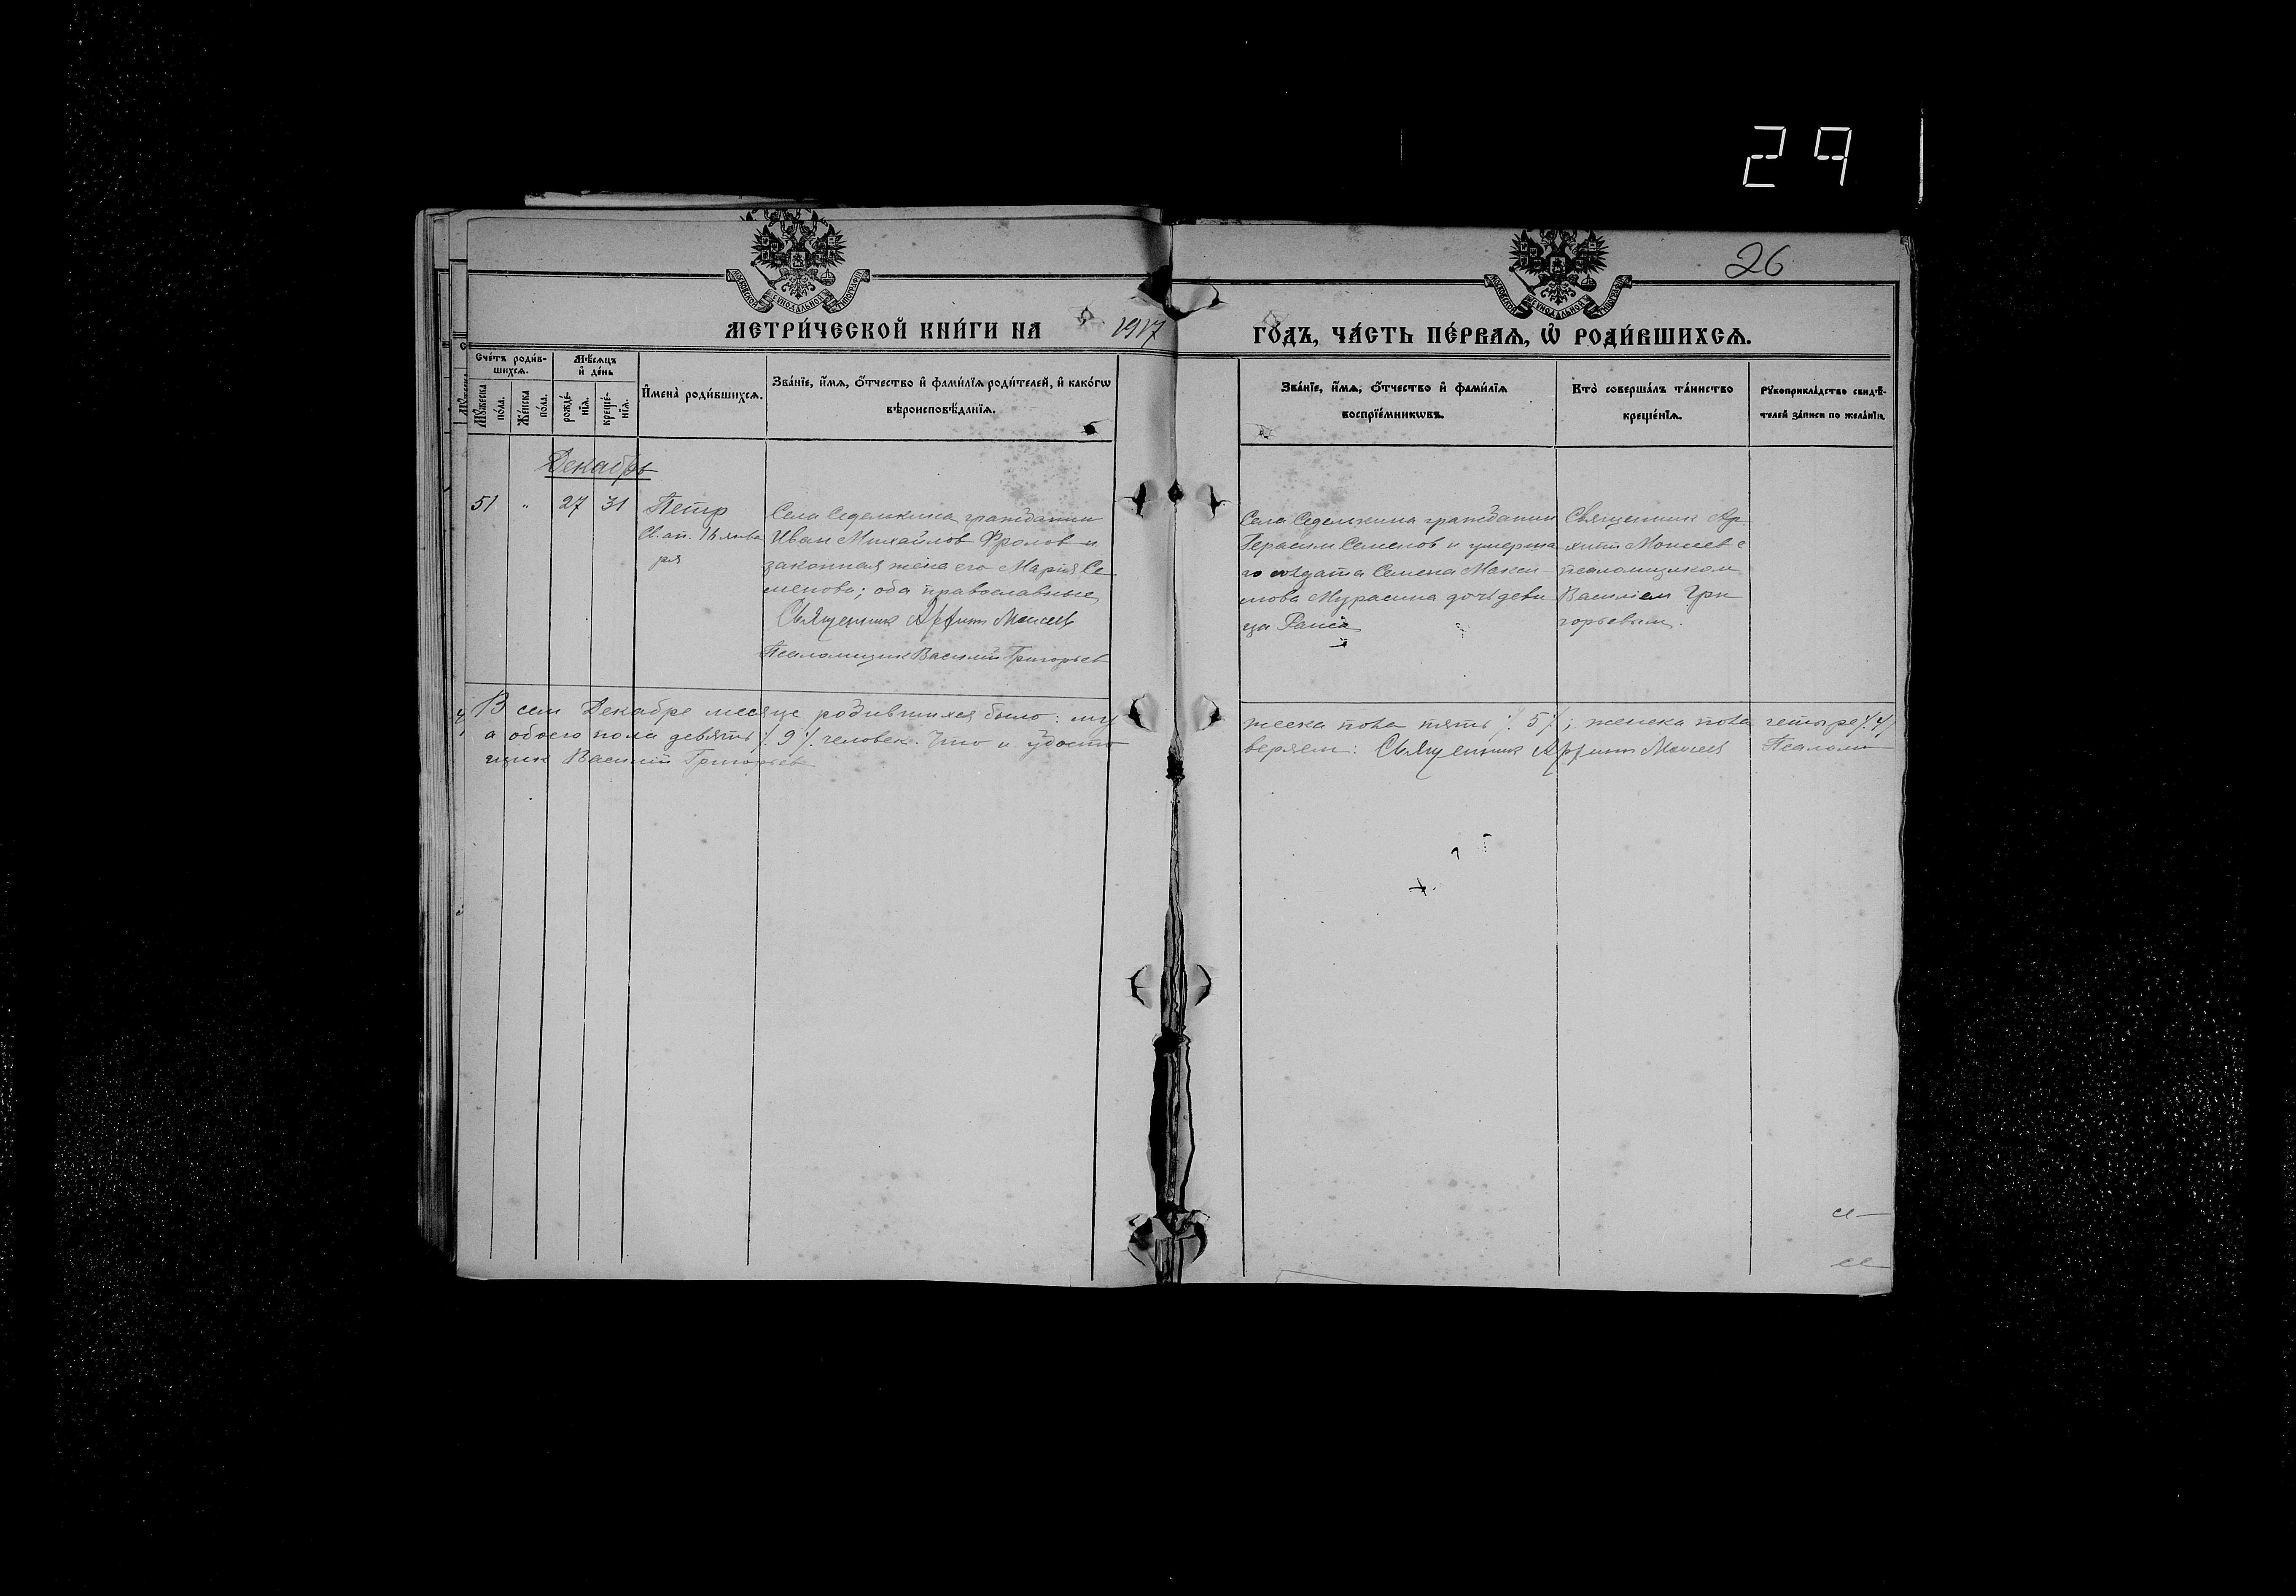 29
26
МЕТРИ́ЧЕСКОЙ КНИ́ГИ НА 1917 ГО́ДЪ, ЧА́СТЬ ПЕ́РВАѦ, Ѡ҆ РОДИ́ВШИХСѦ.
Сче́тъ роди́в-
шихсѧ.
Мꙋ́жеска
по́ла.
Же́нска
по́ла.
Мѣ́сѧцъ
и҆ де́нь
рожде́-
нїѧ.
креще́-
нїѧ.
И҆мена̀ роди́вшихсѧ.
Зва́нїе, и҆́мѧ, ѻ҆́тчество и҆ фами́лїѧ роди́телей, и҆ како́гѡ
вѣроисповѣ́данїѧ.
Зва́нїе, и҆́мѧ, ѻ҆́тчество и҆ фами́лїѧ
воспрїе́мникѡвъ.
Кто̀ соверша́лъ та́инство
креще́нїѧ.
Рꙋкоприкла́дство свидѣ́-
телей за́писи по жела́нїю.
Декабрь
51 " 27 31
Петр
Св. ап. 16 янва
ря
Села Седелькина гражданин
Иван Михайлов Фролов и
законная жена его Мария Се
менова; оба православные
Священник Архипп Моисеев
Псаломщик Василий Григорьев
Села Седелькина гражданин
Герасим Семенов и умерша
го солдата Семена Макси
мова Мурасина дочь деви
ца Раиса
Священник Ар
хипп Моисеев с
псаломщиком
Василием Гри
горьевым.
В сем Декабре месяце родившихся было: му жеска пола пять ٪ 5 ٪; женска пола четыре ٪ 4 ٪
а обоего пола девять ٪ 9 ٪ человек. Что и удосто веряем: Священник Архипп Моисеев Псалом
щик Василий Григорьев